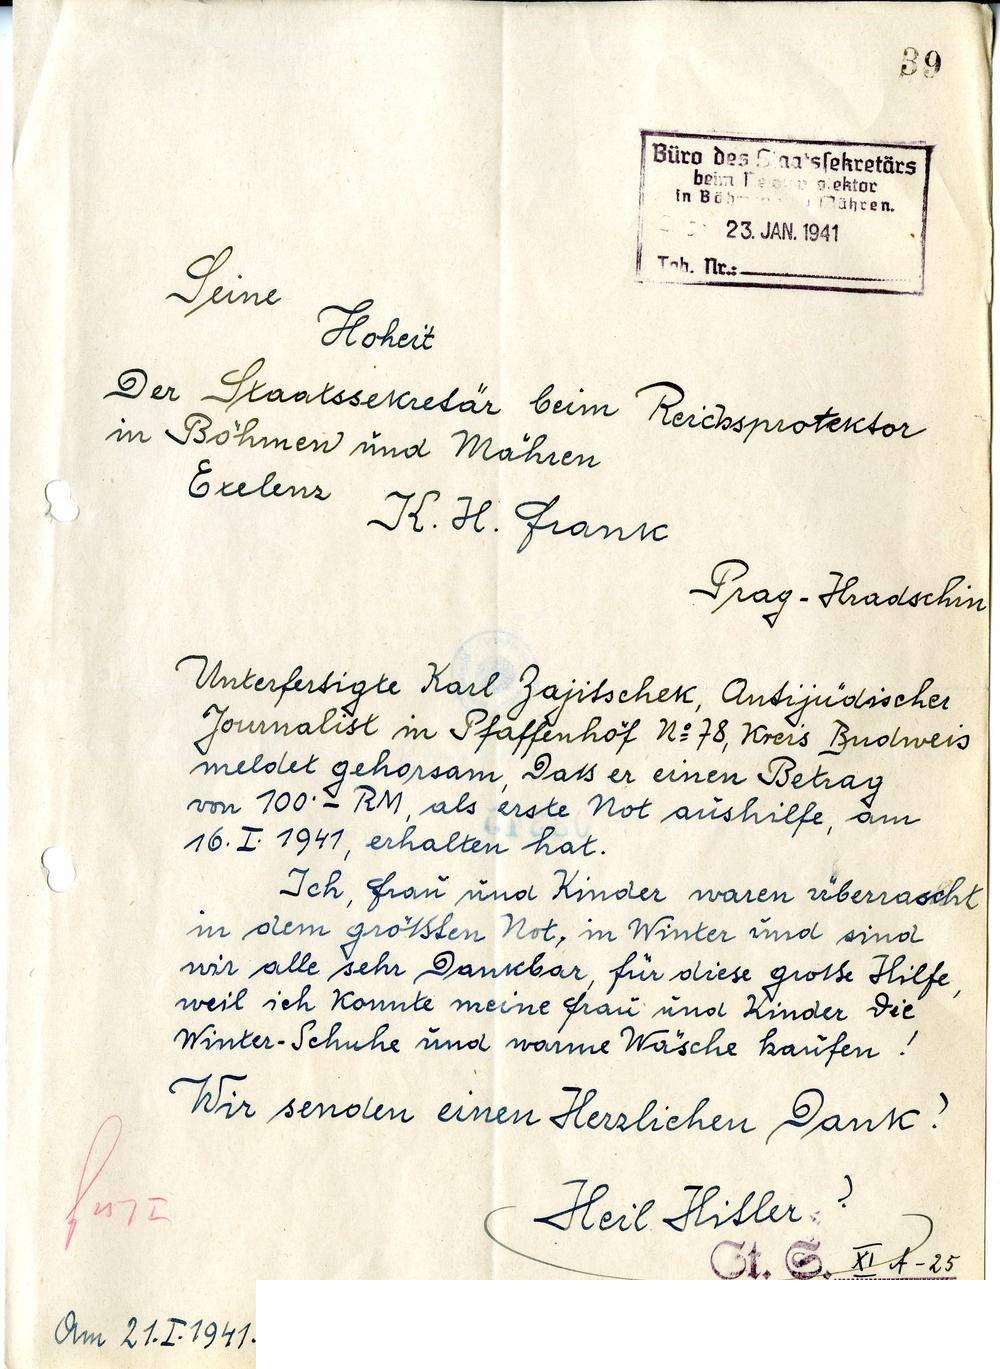 39
Büro des Staatssekretärs
beim Reichsprotektor
in Böhmen und Mähren.
23. JAN. 1941
Tgb. Nr.:
Seine
Hoheit
Der Staatssekretär beim Reichsprotektor
in Böhmen und Mähren
Exelenz K. H. Frank
Prag - Hradschin
Unterfertigte Karl Zajitschek, Antijüdischer
Journalist in Pfaffenhöf No 78, Kreis Budweis
meldet gehorsam, Daß er einen Betrag
von 100·– RM, als erste Not aushilfe, am
16. I. 1941, erhalten hat.
Ich, Frau und Kinder waren überrascht
in dem größten Not, in Winter und sind
wir alle sehr Dankbar, für diese große Hilfe,
weil ich konnte meine Frau und Kinder die
Winter-Schuhe und warme Wäsche kaufen!
Wir senden einen Herzlichen Dank!
Heil Hitler!
St. S. XI A - 25
Am 21. I. 1941.